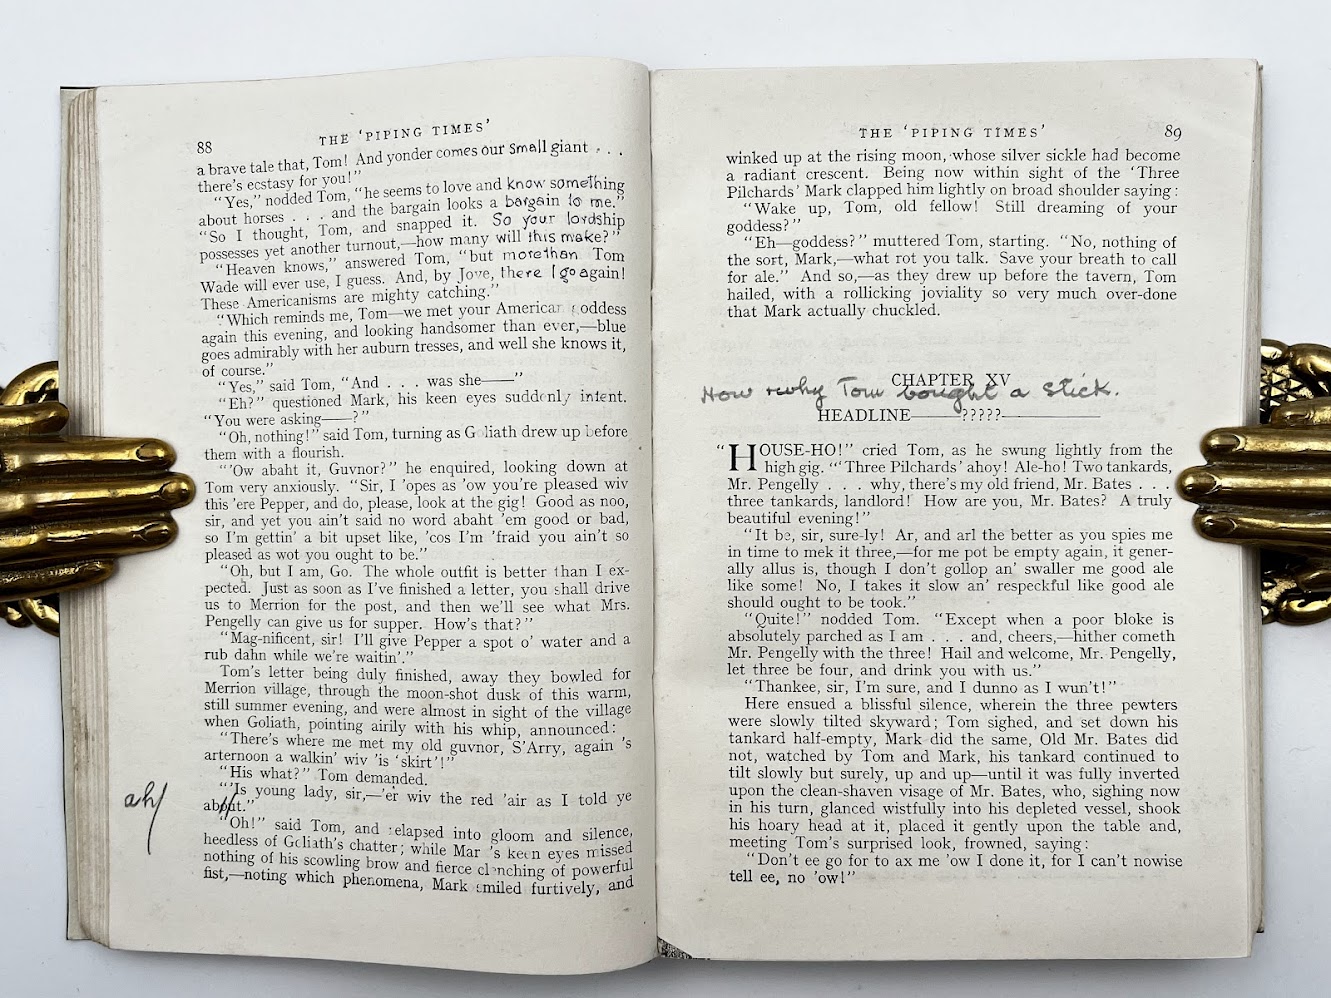 88
THE 'PIPING TIMES'
a brave tale that, Tom! And yonder comes our small giant . . .
there's ecstasy for you!"
"Yes," nodded Tom, "he seems to love and know something
about horses . . . and the bargain looks a bargain to me."
"So I thought, Tom, and snapped it. So your lordship
possesses yet another turnout,—how many will this make?"
"Heaven knows," answered Tom, "but more than Tom
Wade will ever use, I guess. And, by Jove, there I go again!
These Americanisms are mighty catching."
"Which reminds me, Tom—we met your American goddess
again this evening, and looking handsomer than ever,—blue
goes admirably with her auburn tresses, and well she knows it,
of course."
"Yes," said Tom, "And . . . was she——"
"Eh?" questioned Mark, his keen eyes suddenly intent.
"You were asking——?"
"Oh, nothing!" said Tom, turning as Goliath drew up before
them with a flourish.
"'Ow abaht it, Guvnor?" he enquired, looking down at
Tom very anxiously. "Sir, I 'opes as 'ow you're pleased wiv
this 'ere Pepper, and do, please, look at the gig! Good as noo,
sir, and yet you ain't said no word abaht 'em good or bad,
so I'm gettin' a bit upset like, 'cos I'm 'fraid you ain't so
pleased as wot you ought to be."
"Oh, but I am, Go. The whole outfit is better than I ex-
pected. Just as soon as I've finished a letter, you shall drive
us to Merrion for the post, and then we'll see what Mrs.
Pengelly can give us for supper. How's that?"
"Mag-nificent, sir! I'll give Pepper a spot o' water and a
rub dahn while we're waitin'."
Tom's letter being duly finished, away they bowled for
Merrion village, through the moon-shot dusk of this warm,
still summer evening, and were almost in sight of the village
when Goliath, pointing airily with his whip, announced:
"There's where me met my old guvnor, S'Arry, again 's
arternoon a walkin' wiv 'is 'skirt'!"
"His what?" Tom demanded.
"'Is young lady, sir,—'er wiv the red 'air as I told ye
about."
ah/
"Oh!" said Tom, and relapsed into gloom and silence,
heedless of Goliath's chatter; while Mark's keen eyes missed
nothing of his scowling brow and fierce clenching of powerful
fist,—noting which phenomena, Mark smiled furtively, and
THE 'PIPING TIMES'
89
winked up at the rising moon, whose silver sickle had become
a radiant crescent. Being now within sight of the 'Three
Pilchards' Mark clapped him lightly on broad shoulder saying:
"Wake up, Tom, old fellow! Still dreaming of your
goddess?"
"Eh—goddess?" muttered Tom, starting. "No, nothing of
the sort, Mark,—what rot you talk. Save your breath to call
for ale." And so,—as they drew up before the tavern, Tom
hailed, with a rollicking joviality so very much over-done
that Mark actually chuckled.
CHAPTER XV
How & why Tom bought a stick.
HEADLINE——?????——
"HOUSE-HO!" cried Tom, as he swung lightly from the
high gig. "'Three Pilchards' ahoy! Ale-ho! Two tankards,
Mr. Pengelly . . . why, there's my old friend, Mr. Bates . . .
three tankards, landlord! How are you, Mr. Bates? A truly
beautiful evening!"
"It be, sir, sure-ly! Ar, and arl the better as you spies me
in time to mek it three,—for me pot be empty again, it gener-
ally allus is, though I don't gollop an' swaller me good ale
like some! No, I takes it slow an' respeckful like good ale
should ought to be took."
"Quite!" nodded Tom. "Except when a poor bloke is
absolutely parched as I am . . . and, cheers,—hither cometh
Mr. Pengelly with the three! Hail and welcome, Mr. Pengelly,
let three be four, and drink you with us."
"Thankee, sir, I'm sure, and I dunno as I wun't!"
Here ensued a blissful silence, wherein the three pewters
were slowly tilted skyward; Tom sighed, and set down his
tankard half-empty, Mark did the same, Old Mr. Bates did
not, watched by Tom and Mark, his tankard continued to
tilt slowly but surely, up and up—until it was fully inverted
upon the clean-shaven visage of Mr. Bates, who, sighing now
in his turn, glanced wistfully into his depleted vessel, shook
his hoary head at it, placed it gently upon the table and,
meeting Tom's surprised look, frowned, saying:
"Don't ee go for to ax me 'ow I done it, for I can't nowise
tell ee, no 'ow!"